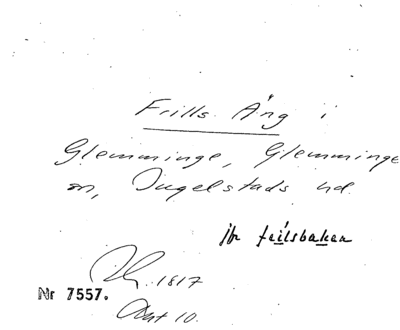 Frills Äng i
Glemminge, Glemminge
sn, Ingelstads hd.
jfr frilsbakan
1817
Nr 7557.
Akt 10.